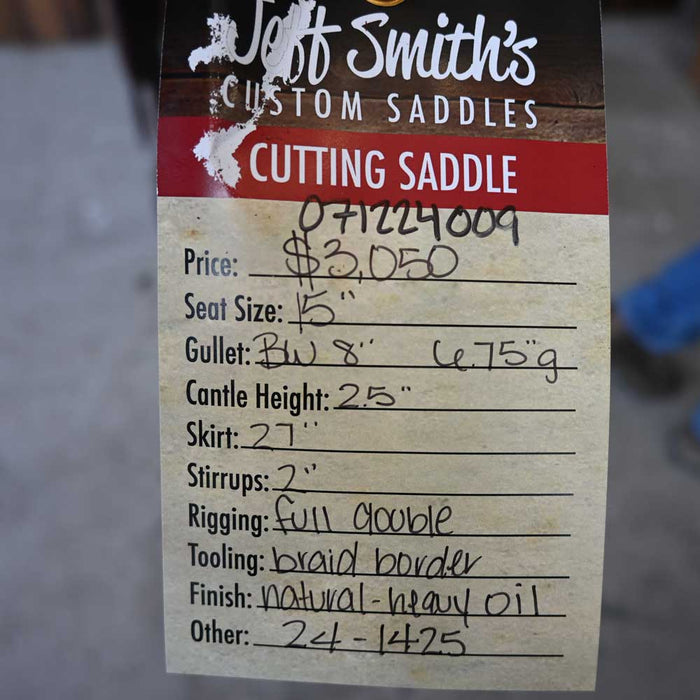 Jeff Smith's
CUSTOM SADDLES
CUTTING SADDLE
071224009
Price: $3,050
Seat Size: 15"
Gullet: BW 8" 6.75"g
Cantle Height: 2.5"
Skirt: 27"
Stirrups: 2"
Rigging: full double
Tooling: braid border
Finish: natural-heavy oil
Other: 24-1425